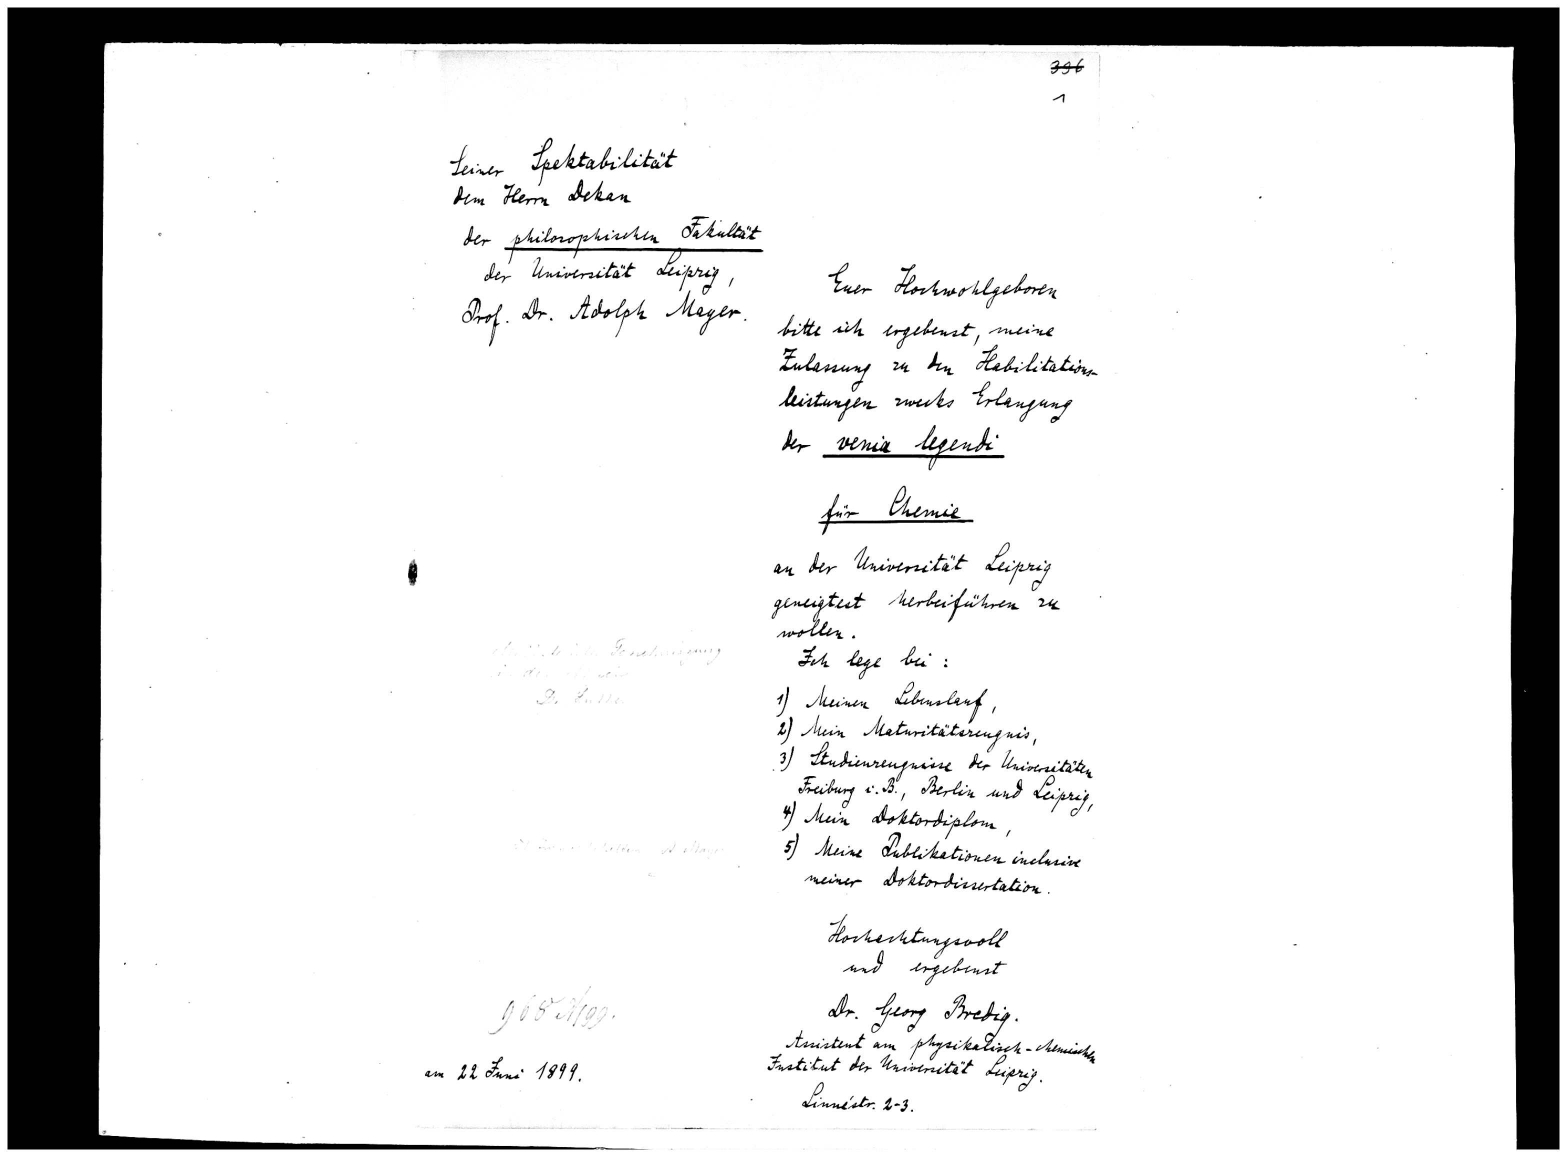 396
1
Seiner Spektabilität
dem Herrn Dekan
der philosophischen Fakultät
der Universität Leipzig,
Prof. Dr. Adolph Mayer.
Euer Hochwohlgeboren
bitte ich ergebenst, meine
Zulassung zu den Habilitations-
leistungen zwecks Erlangung
der venia legendi
für Chemie
an der Universität Leipzig
geneigtest herbeiführen zu
wollen.
Ich lege bei:
1) Meinen Lebenslauf,
2) Mein Maturitätszeugnis,
3) Studienzeugnisse der Universitäten
Freiburg i. B., Berlin und Leipzig,
4) Mein Doktordiplom,
5) Meine Publikationen inclusive
meiner Doktordissertation.
Hochachtungsvoll
und ergebenst
Dr. Georg Bredig.
Assistent am physikalisch-chemischen
Institut der Universität Leipzig.
Linnéstr. 2-3.
am 22 Juni 1899.